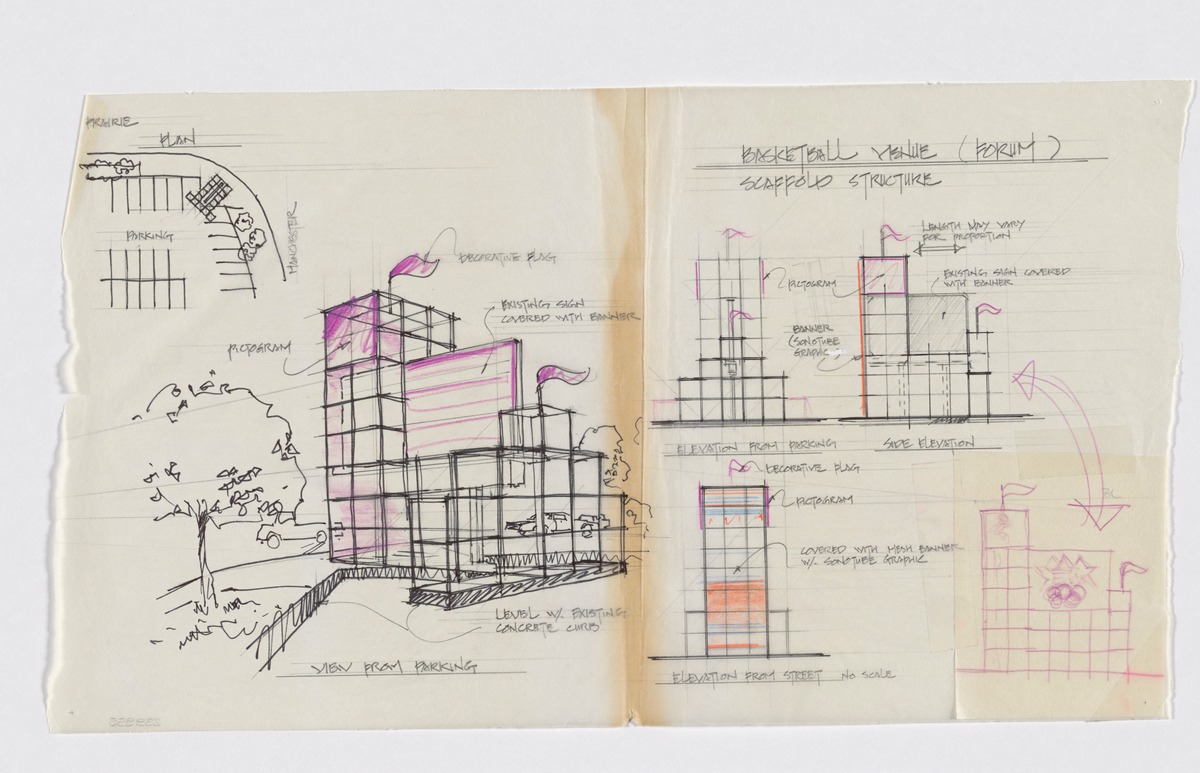 PRAIRIE
PLAN
PARKING
MANCHESTER
DECORATIVE FLAG
EXISTING SIGN
COVERED WITH BANNER
PICTOGRAM
LEVEL W/ EXISTING
CONCRETE CURB
VIEW FROM PARKING
BASKETBALL VENUE (FORUM)
SCAFFOLD STRUCTURE
LENGTH MAY VARY
FOR PROPORTION
PICTOGRAM
EXISTING SIGN COVERED
WITH BANNER
BANNER
(SONOTUBE
GRAPHIC)
ELEVATION FROM PARKING
SIDE ELEVATION
DECORATIVE FLAG
PICTOGRAM
COVERED WITH MESH BANNER
W/ SONOTUBE GRAPHIC
ELEVATION FROM STREET NO SCALE